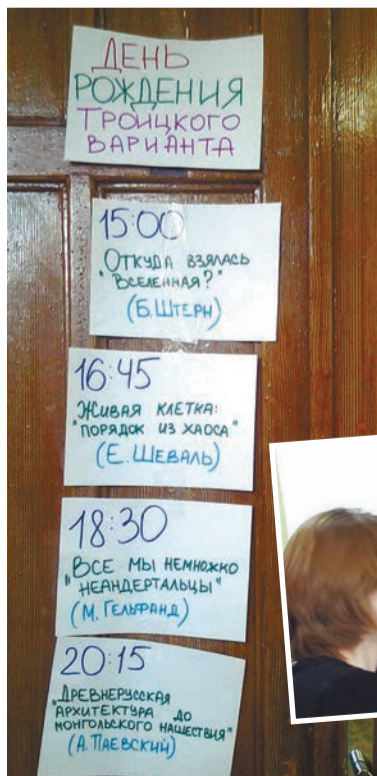 ДЕНЬ
РОЖДЕНИЯ
ТРОИЦКОГО
ВАРИАНТА
15:00
ОТКУДА ВЗЯЛАСЬ
"ВСЕЛЕННАЯ?"
(Б. ШТЕРН)
16:45
ЖИВАЯ КЛЕТКА:
"ПОРЯДОК ИЗ ХАОСА"
(Е. ШЕВАЛЬ)
18:30
„ВСЕ МЫ НЕМНОЖКО
НЕАНДЕРТАЛЬЦЫ"
(М. ГЕЛЬФАНД)
20:15
„ДРЕВНЕРУССКАЯ
АРХИТЕКТУРА ДО
МОНГОЛЬСКОГО НАШЕСТВИЯ"
(А. ПАЕВСКИЙ)